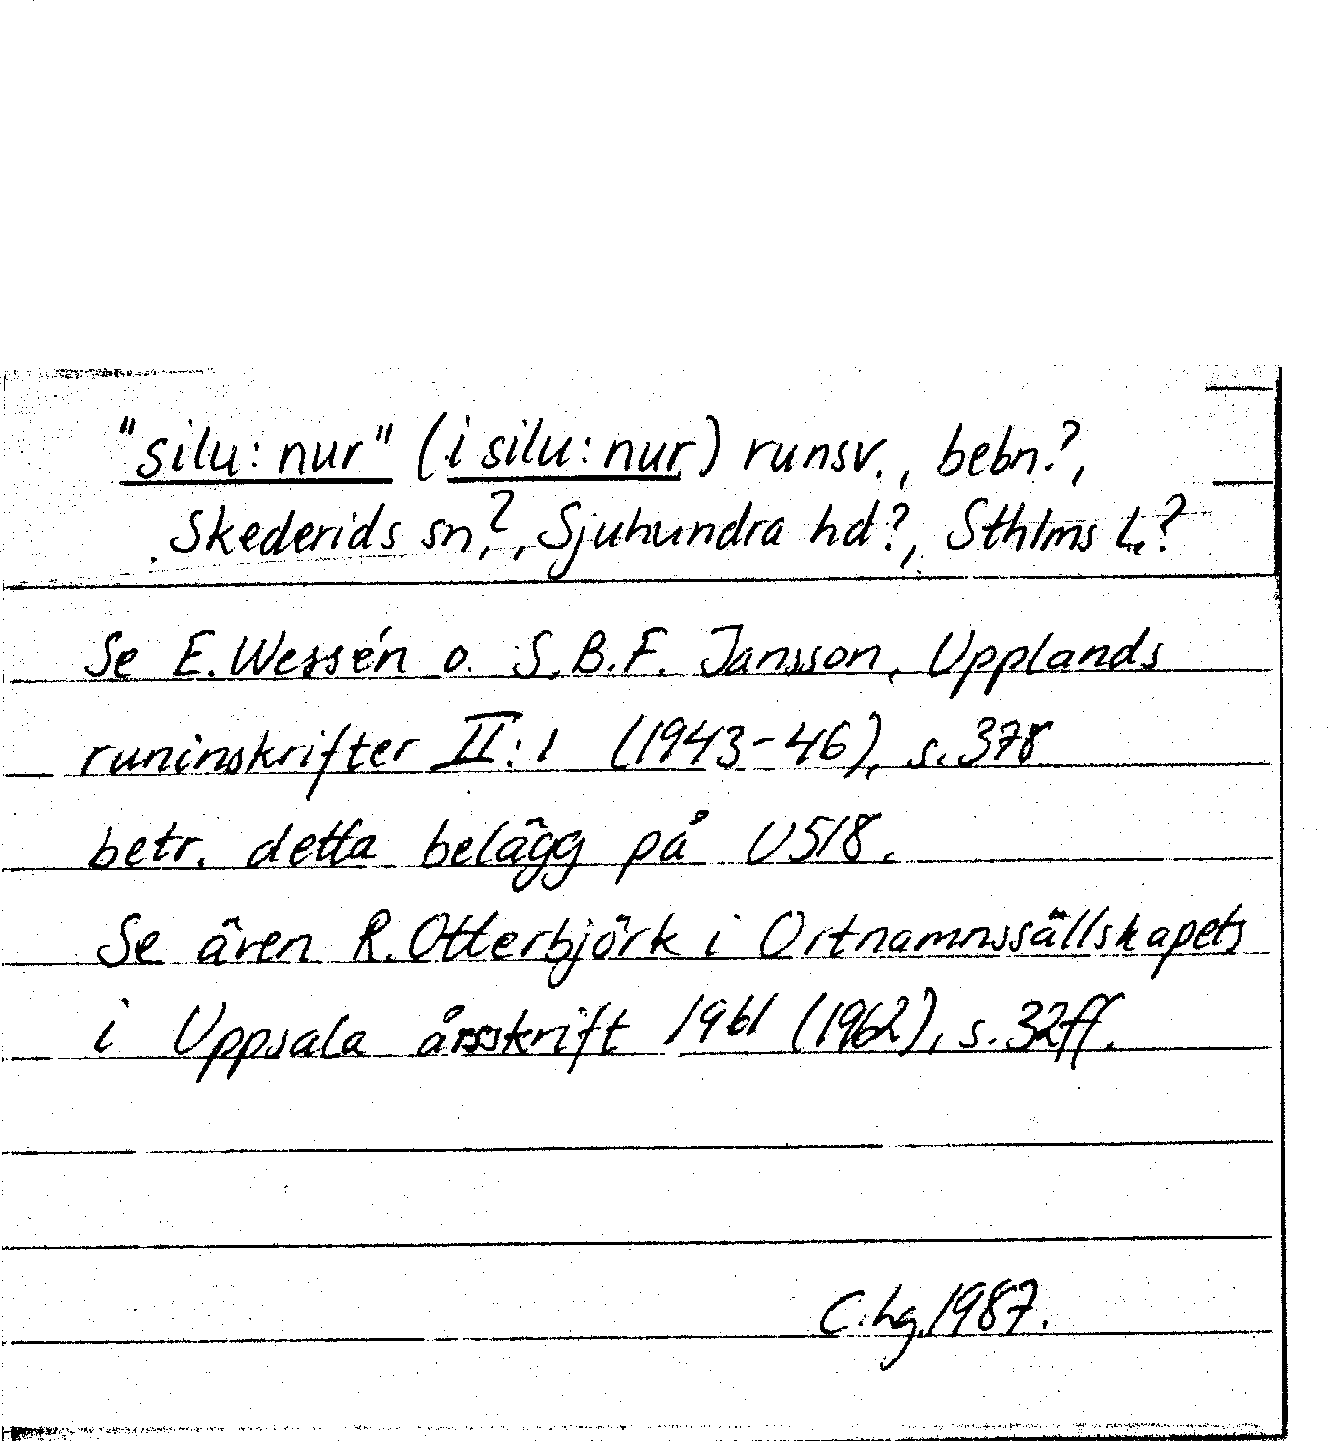 "silu: nur" (i silu: nur) runsv., bebn.?,
Skederids sn.?, Sjuhundra hd?, Sthlms l.?
Se E. Wessén o. S.B.F. Jansson, Upplands
runinskrifter II:1 (1943-46), s. 378
betr. detta belägg på U518.
Se även R. Otterbjörk i Ortnamnssällskapets
i Uppsala årsskrift 1961 (1962), s. 32ff.
C.hg. 1987.